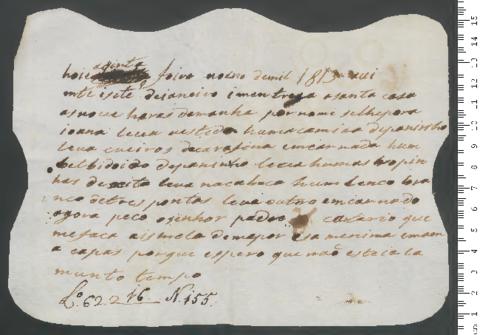 hoie quinta feira nobro demil 1815 vui
inte esete dejaneiro i mentrega asanta casa
asnove horas demanha por nome selhepora
ioana leva vestido huma camiza depanisho
leva cueiros de encarnada hum
belbidoido depaninho leva humas ropin
has de leva nacabeca hum lenco bra
nco detres pontas leva outro emcarnado
agora peco osenhor padre que
mefaca aismola demapor esa menina emam
a capas porque espero que não esteia la
munto tempo
Lº 62. 276 N. 155.